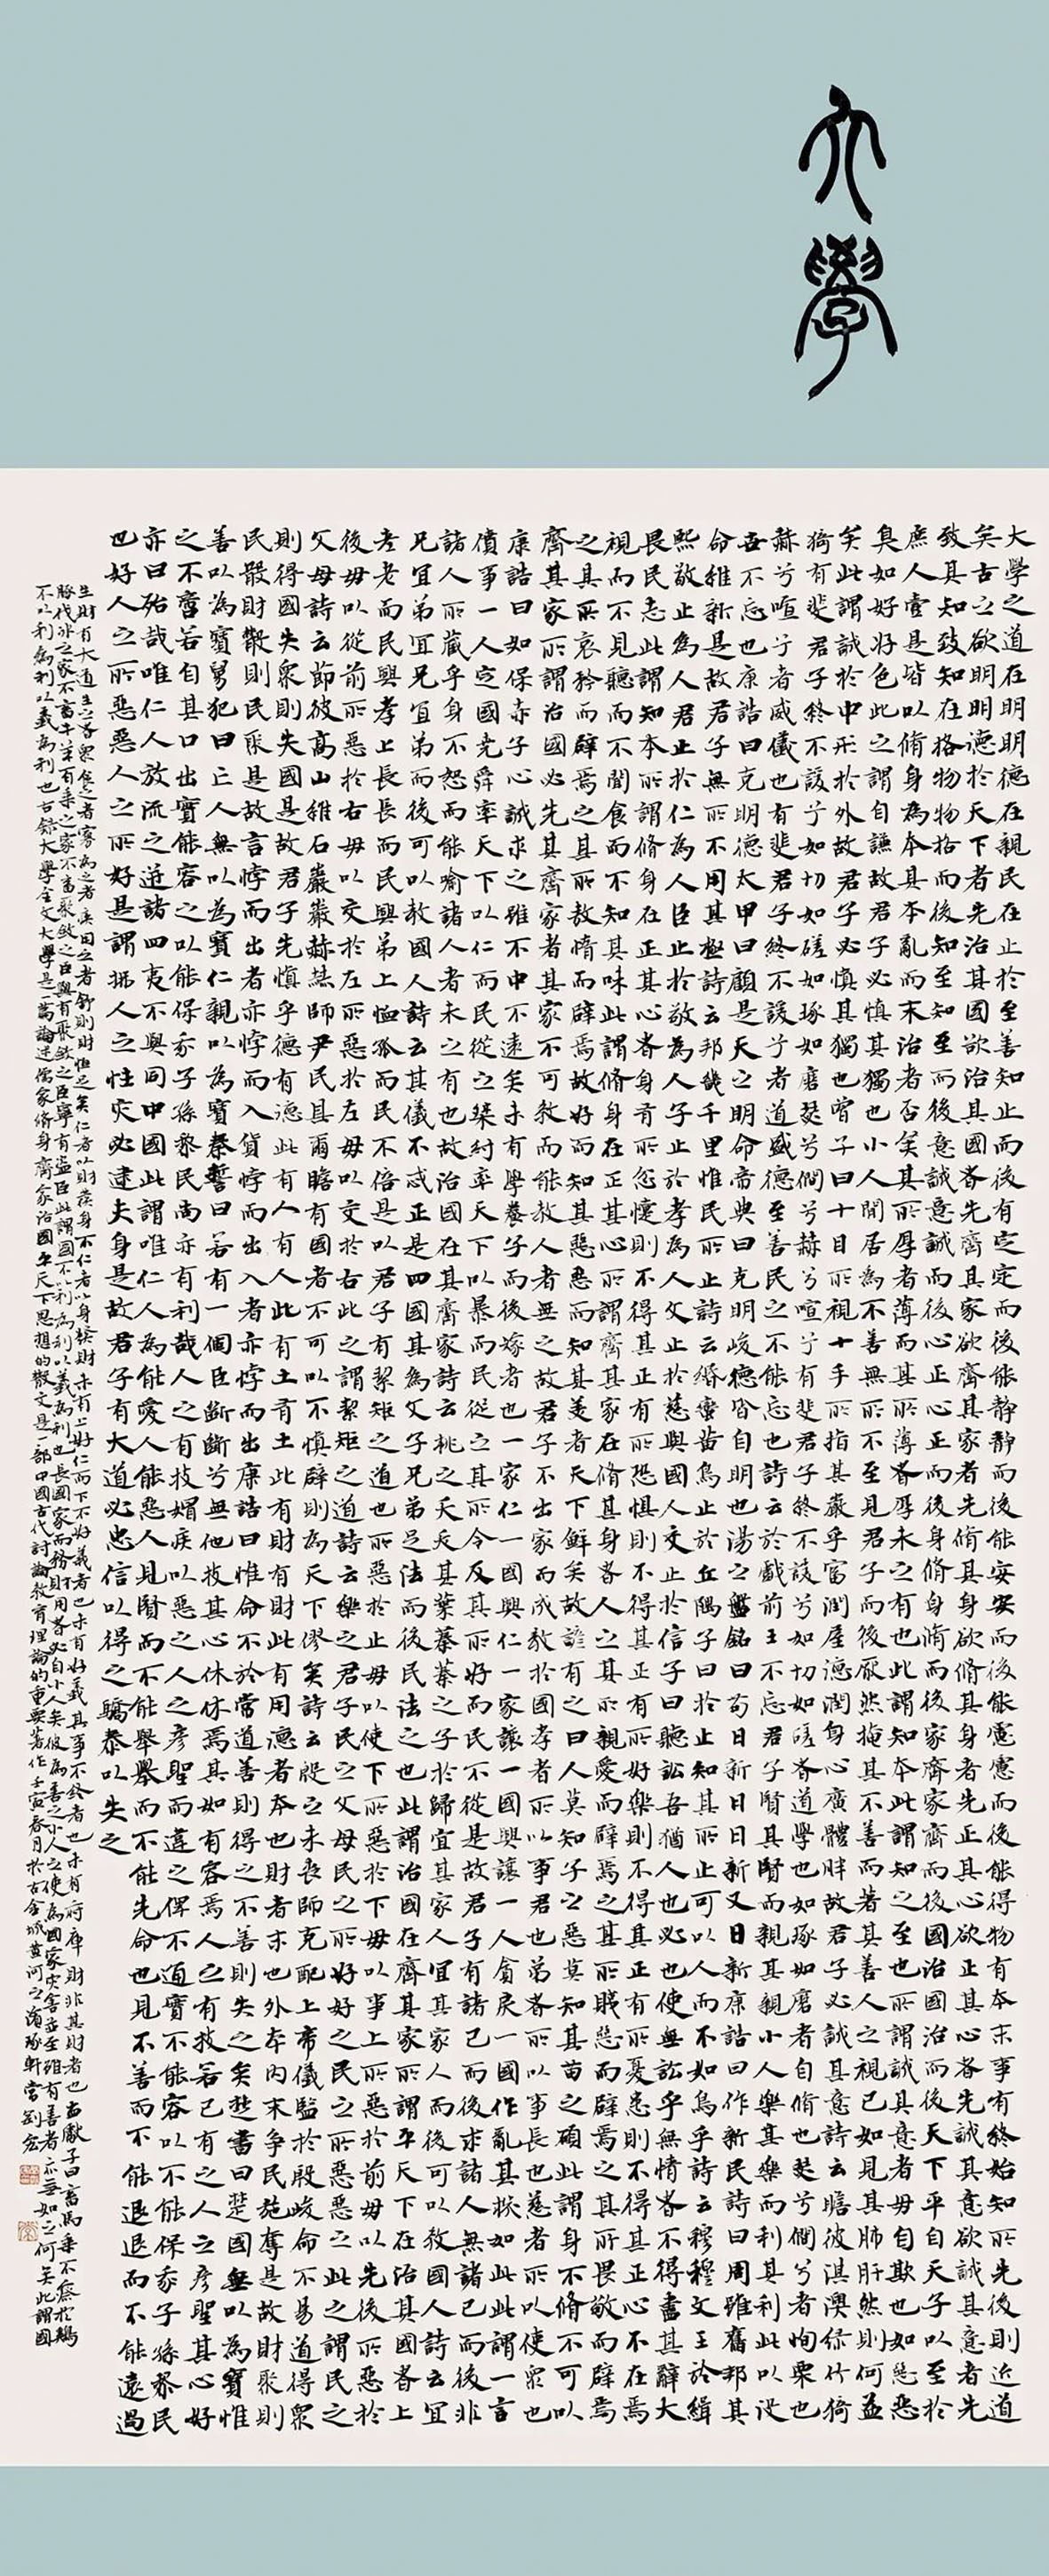 大學
大學之道在明明德在親民在止於至善知止而後有定定而後能靜靜而後能安安而後能慮慮而後能得物有本末事有終始知所先後則近道
矣古之欲明明德於天下者先治其國欲治其國者先齊其家欲齊其家者先脩其身欲脩其身者先正其心欲正其心者先誠其意欲誠其意者先
致其知致知在格物物格而後知至知至而後意誠意誠而後心正心正而後身脩身脩而後家齊家齊而後國治國治而後天下平自天子以至於
庶人壹是皆以脩身為本其本亂而末治者否矣其所厚者薄而其所薄者厚未之有也此謂知本此謂知之至也所謂誠其意者毋自欺也如惡惡
臭如好好色此之謂自謙故君子必慎其獨也小人閒居為不善無所不至見君子而後厭然掩其不善而著其善人之視己如見其肺肝然則何益
矣此謂誠於中形於外故君子必慎其獨也曾子曰十目所視十手所指其嚴乎富潤屋德潤身心廣體胖故君子必誠其意詩云瞻彼淇澳菉竹猗
猗有斐君子終不諼兮如切如磋如琢如磨瑟兮僩兮赫兮喧兮有斐君子終不諼兮如切如磋者道學也如琢如磨者自脩也瑟兮僩兮者恂栗也
赫兮喧兮者威儀也有斐君子終不諼兮者道盛德至善民之不能忘也詩云於戲前王不忘君子賢其賢而親其親小人樂其樂而利其利此以沒
世不忘也康誥曰克明德太甲曰顧是天之明命帝典曰克明峻德皆自明也湯之盤銘曰苟日新日日新又日新康誥曰作新民詩曰周雖舊邦其
命維新是故君子無所不用其極詩云邦畿千里惟民所止詩云緡蠻黃鳥止於丘隅子曰於止知其所止可以人而不如鳥乎詩云穆穆文王於緝
熙敬止為人君止於仁為人臣止於敬為人子止於孝為人父止於慈與國人交止於信子曰聽訟吾猶人也必也使無訟乎無情者不得盡其辭大
畏民志此謂知本所謂脩身在正其心者身有所忿懥則不得其正有所恐懼則不得其正有所好樂則不得其正有所憂患則不得其正心不在焉
視而不見聽而不聞食而不知其味此謂脩身在正其心所謂齊其家在脩其身者人之其所親愛而辟焉之其所賤惡而辟焉之其所畏敬而辟焉
之其所哀矜而辟焉之其所敖惰而辟焉故好而知其惡惡而知其美者天下鮮矣故諺有之曰人莫知子之惡莫知其苗之碩此謂身不脩不可以
齊其家所謂治國必先齊其家者其家不可教而能教人者無之故君子不出家而成教於國孝者所以事君也弟者所以事長也慈者所以使眾也
康誥曰如保赤子心誠求之雖不中不遠矣未有學養子而後嫁者也一家仁一國興仁一家讓一國興讓一人貪戾一國作亂其機如此此謂一言
僨事一人定國堯舜率天下以仁而民從之桀紂率天下以暴而民從之其所令反其所好而民不從是故君子有諸己而後求諸人無諸己而後非
諸人所藏乎身不恕而能喻諸人者未之有也故治國在齊其家詩云桃之夭夭其葉蓁蓁之子於歸宜其家人宜其家人而後可以教國人詩云宜
兄宜弟宜兄宜弟而後可以教國人詩云其儀不忒正是四國其為父子兄弟足法而後民法之也此謂治國在齊其家所謂平天下在治其國者上
老老而民興孝上長長而民興弟上恤孤而民不倍是以君子有絜矩之道也所惡於上毋以使下所惡於下毋以事上所惡於前毋以先後所惡於
後毋以從前所惡於右毋以交於左所惡於左毋以交於右此之謂絜矩之道詩云樂之君子民之父母民之所好好之民之所惡惡之此之謂民之
父母詩云節彼高山維石巖巖赫赫師尹民具爾瞻有國者不可以不慎辟則為天下僇矣詩云殷之未喪師克配上帝儀監於殷峻命不易道得眾
則得國失眾則失國是故君子先慎乎德有德此有人有人此有土有土此有財有財此有用德者本也財者末也外本內末爭民施奪是故財聚則
民散財散則民聚是故言悖而出者亦悖而入貨悖而出入者亦悖而出康誥曰惟命不於常道善則得之不善則失之矣楚書曰楚國無以為寶惟
善以為寶舅犯曰亡人無以為寶仁親以為寶秦誓曰若有一個臣斷斷兮無他技其心休休焉其如有容焉人之有技若己有之人之彥聖其心好
之不啻若自其口出寶能容之以能保我子孫黎民尚亦有利哉人之有技媢疾以惡之人之彥聖而違之俾不通寶不能容以不能保我子孫黎民
亦曰殆哉唯仁人放流之迸諸四夷不與同中國此謂唯仁人為能愛人能惡人見賢而不能舉舉而不能先命也見不善而不能退退而不能遠過
也好人之所惡惡人之所好是謂拂人之性災必逮夫身是故君子有大道必忠信以得之驕泰以失之
生財有大道生之者眾食之者寡為之者疾用之者舒則財恒足矣仁者以財發身不仁者以身發財未有上好仁而下不好義者也未有好義其事不終者也未有府庫財非其財者也孟獻子曰畜馬乘不察於雞
豚伐冰之家不畜牛羊百乘之家不畜聚斂之臣與其有聚斂之臣寧有盜臣此謂國不以利為利以義為利也長國家而務財用者必自小人矣彼為善之小人之使為國家災害並至雖有善者亦無如之何矣此謂國
不以利為利以義為利也右錄大學全文大學是一篇論述儒家脩身齊家治國平天下思想的散文是一部中國古代討論教育理論的重要著作壬寅春月於古金城黃河之濱琢軒齋劉宏